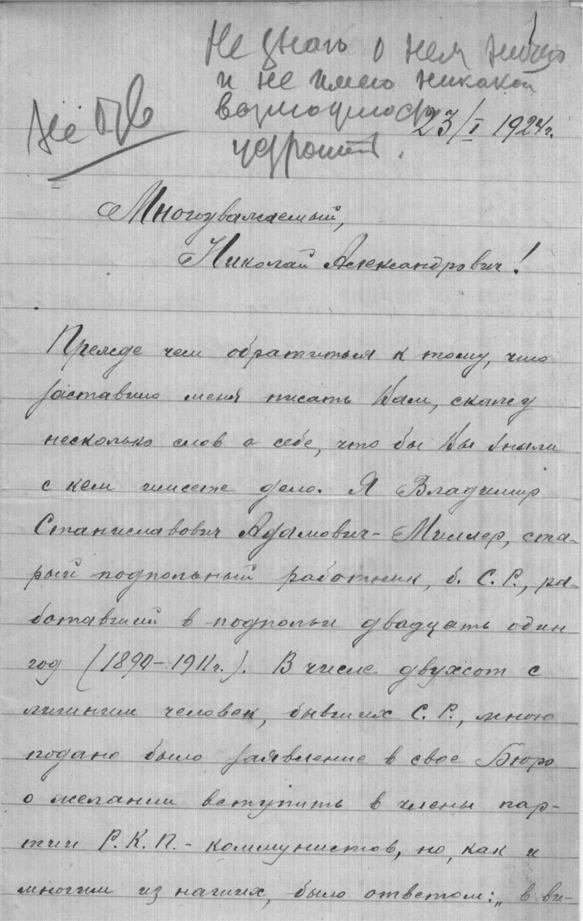 Не знаю о нем ничего
и не имею никакой
возможности
Не отв
23/I 1924г.
устроить.
Многоуважаемый,
Николай Александрович!
Прежде чем обратиться к тому, что
заставило меня писать Вам, скажу
несколько слов о себе, что бы Вы знали
с кем имеете дело. Я Владимир
Станиславович Адамович-Миллер, ста-
рый подпольный работник, б. С.Р., ра-
ботавший в подпольи двадцать один
год (1890-1911г.). В числе двухсот с
лишним человек, бывших С.Р., мною
подано было заявление в свое Бюро
о желании вступить в члены пар-
тии Р.К.П.- коммунистов, но, как и
многим из наших, было ответом: „в ви-